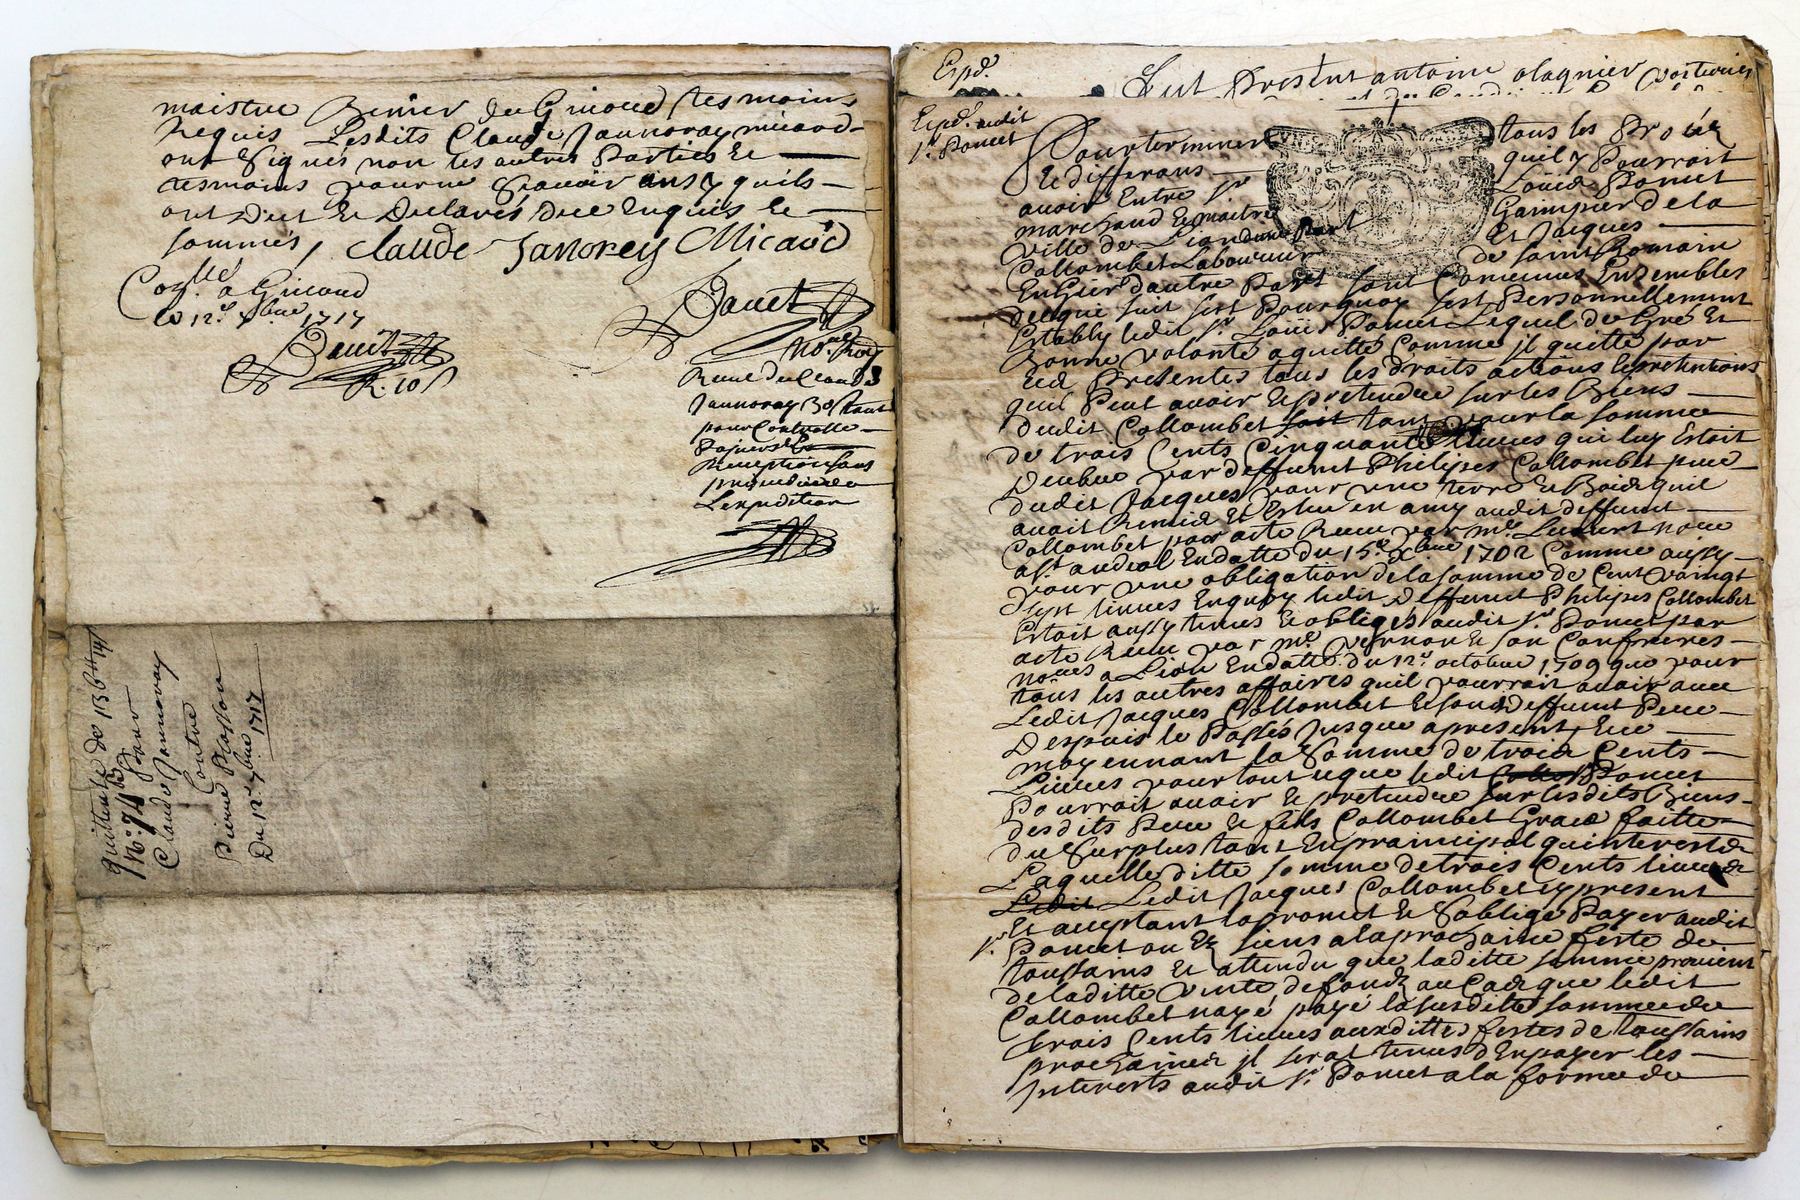 maistre Benier du Giraud tesmoins
Requis Lesdits Claude Jannoray micaud
ont Signés non les autres Parties Et
tesmoins pour ne Scavoir ainsy quils
ont Dit Et Declarés Dece Enquis Et
sommés,
Claude Janorey Micaud
le 12e 7bre 1717
R. 10 s
Receu de Claude
Jannoray 30 s tant
pour Controlle
Papiers Et
Reception sans
prejudice de
L'expedition
quittance de 136 tt
No: 74 B Pour
Claude Jannoray
Contre
Pierre Plasson
Du 12e 7bre 1717
Expd.
fut Present antoine
Expd. audit
sr. Poncet
Pour terminer tous les Proces
Et differans quil y Pourroit
avoir Entre sr Loüis Poncet
marchand Et maitre Guimpier de la
ville de Lion dune Part Et Jacques
Collombet Laboureur de saint Romain
En Gier dautre Part sont Convenus Ensembles
de ce que suit sest Pourquoy sest Personnellement
Estably ledit sr. Loüis Poncet Lequel de Gré Et
Bonne volonté a quitté Comme jl quitte par
ces Presentes tous les droits actions Et pretentions
quil Peut avoir Et pretendre sur les Biens
dudit Collombet soit tant pour la somme
de trois Cents Cinquante Livres qui luy Estoit
Deubue par deffunt Philipes Collombet pere
dudit Jacques pour une terre Et Bois quil
avoit Remis Et Eslu en amy audit deffunt
Collombet par acte Receu par me. nore
En datte du 15e. xbre 1702 Comme aussy
pour une obligation de la somme de Cent vaingt
sept livres En quoy ledit Deffunt Philipes Collombet
Estoit aussy tenus Et obliges audit sr. Poncet par
acte Receu par me. Vernon Et son Confreres
nores a Lion En datte du 12e. octobre 1709 que pour
tous les autres affaires quil pourroit avoir avec
Ledit Jacques Collombet Et son deffunt Pere
Depuis le Passés Jusque apresent, Et ce
moyennant la Somme de trois Cents
Livres pour tout ce que ledit Poncet
Pourroit avoir Et pretendre sur lesdits Biens
desdits Pere Et fils Collombet Grace faitte
du Surplus tant En prainsipal quinterest de
Laquelle ditte somme de trois Cents livres
Ledit Ledit Jacques Collombet jcy present
Et aceptant la promet Et Soblige Payer audit
sr Poncet ou Es siens a la prochaine feste de
toussains Et attendu que laditte somme provient
de laditte vente de fonds au Cas que ledit
Collombet naye payé la susditte somme de
trois Cents livres aux dittes festes de toussains
prochaines jl serat tenus d'En payer les
Interests audit sr. Poncet a la forme de